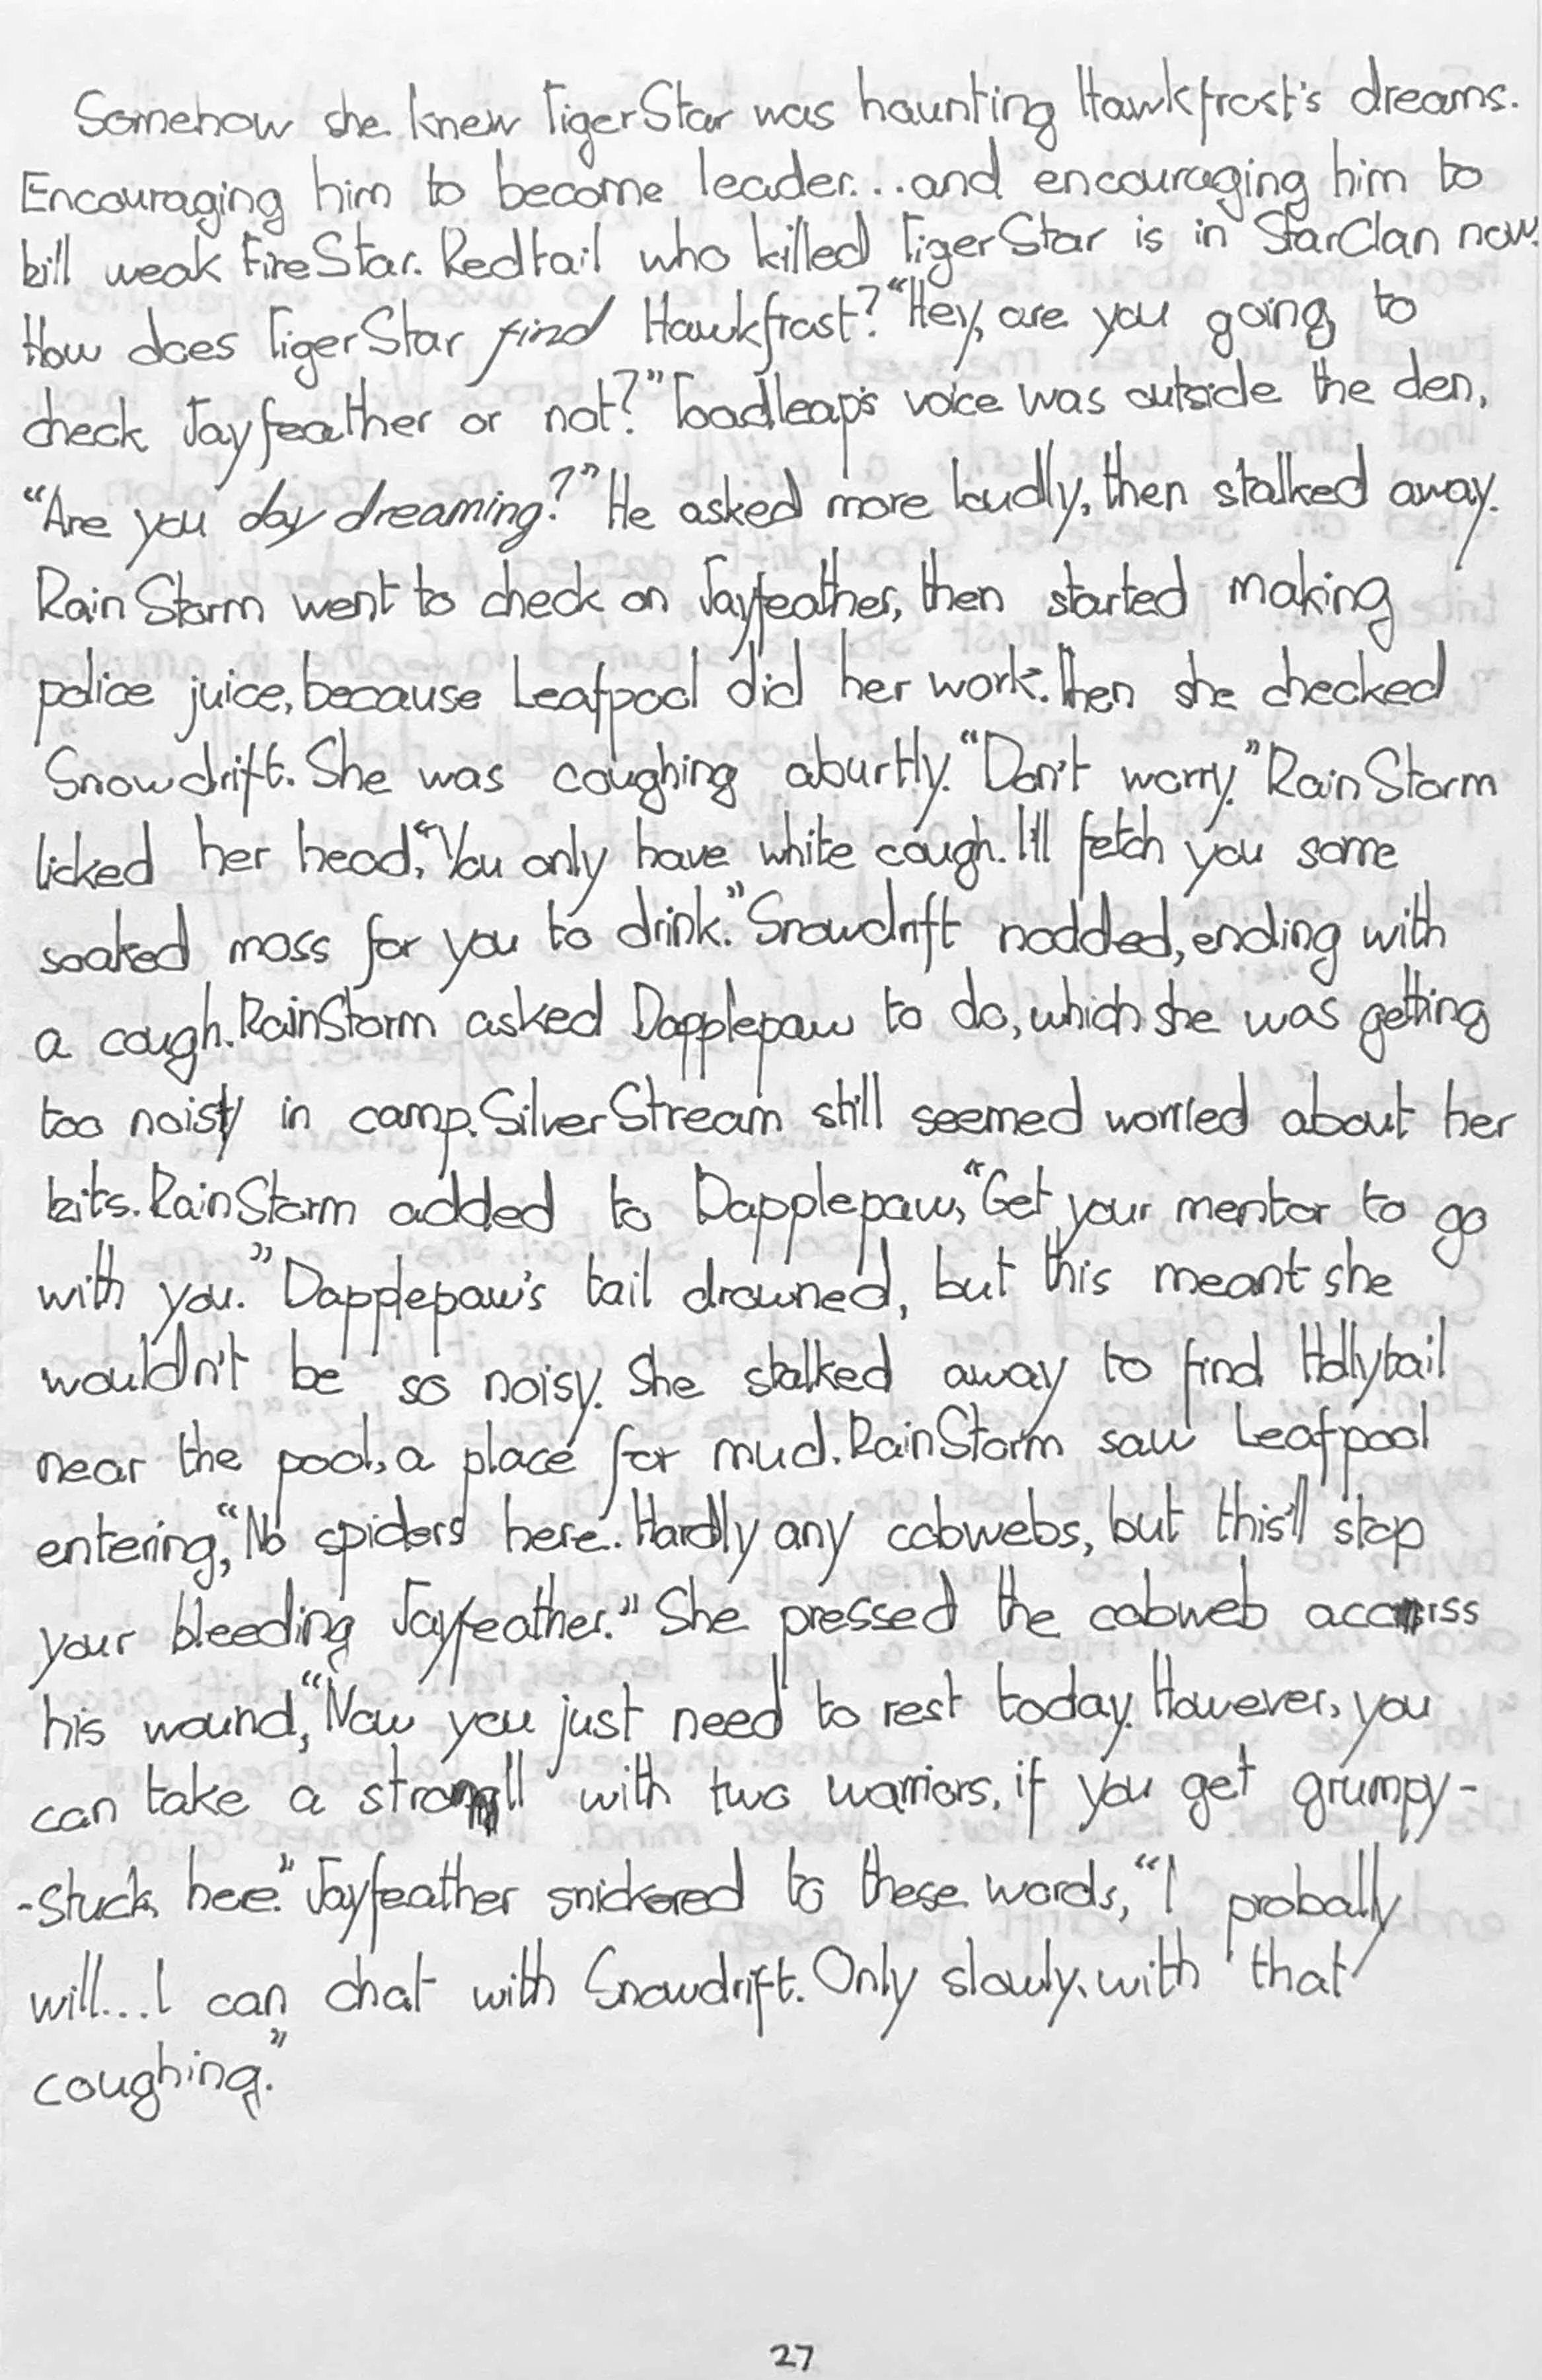 Somehow she knew TigerStar was haunting Hawkfrost's dreams.
Encouraging him to become leader...and encouraging him to
kill weak FireStar. Redtail who killed TigerStar is in StarClan now.
How does TigerStar find Hawkfrost? "Hey, are you going to
check Jayfeather or not?" Toadleap's voice was outside the den,
"Are you day dreaming?" He asked more loudly, then stalked away.
RainStorm went to check on Jayfeather, then started making
police juice, because Leafpool did her work. Then she checked
Snowdrift. She was coughing aburtly. "Don't worry." RainStorm
licked her head, "You only have white cough. I'll fetch you some
soaked moss for you to drink." Snowdrift nodded, ending with
a cough. RainStorm asked Dapplepaw to do, which she was getting
too noisy in camp. SilverStream still seemed worried about her
kits. RainStorm added to Dapplepaw, "Get your mentor to go
with you." Dapplepaw's tail drowned, but this meant she
wouldn't be so noisy. She stalked away to find Hollytail
near the pool, a place for mud. RainStorm saw Leafpool
entering, "No spiders here. Hardly any cobwebs, but this'll stop
your bleeding Jayfeather." She pressed the cobweb
his wound, "Now you just need to rest today. However, you
can take a stroll with two warriors, if you get grumpy-
-stuck here." Jayfeather snickered to these words, "I probally
will...I can chat with Snowdrift. Only slowly, with that
coughing."
27